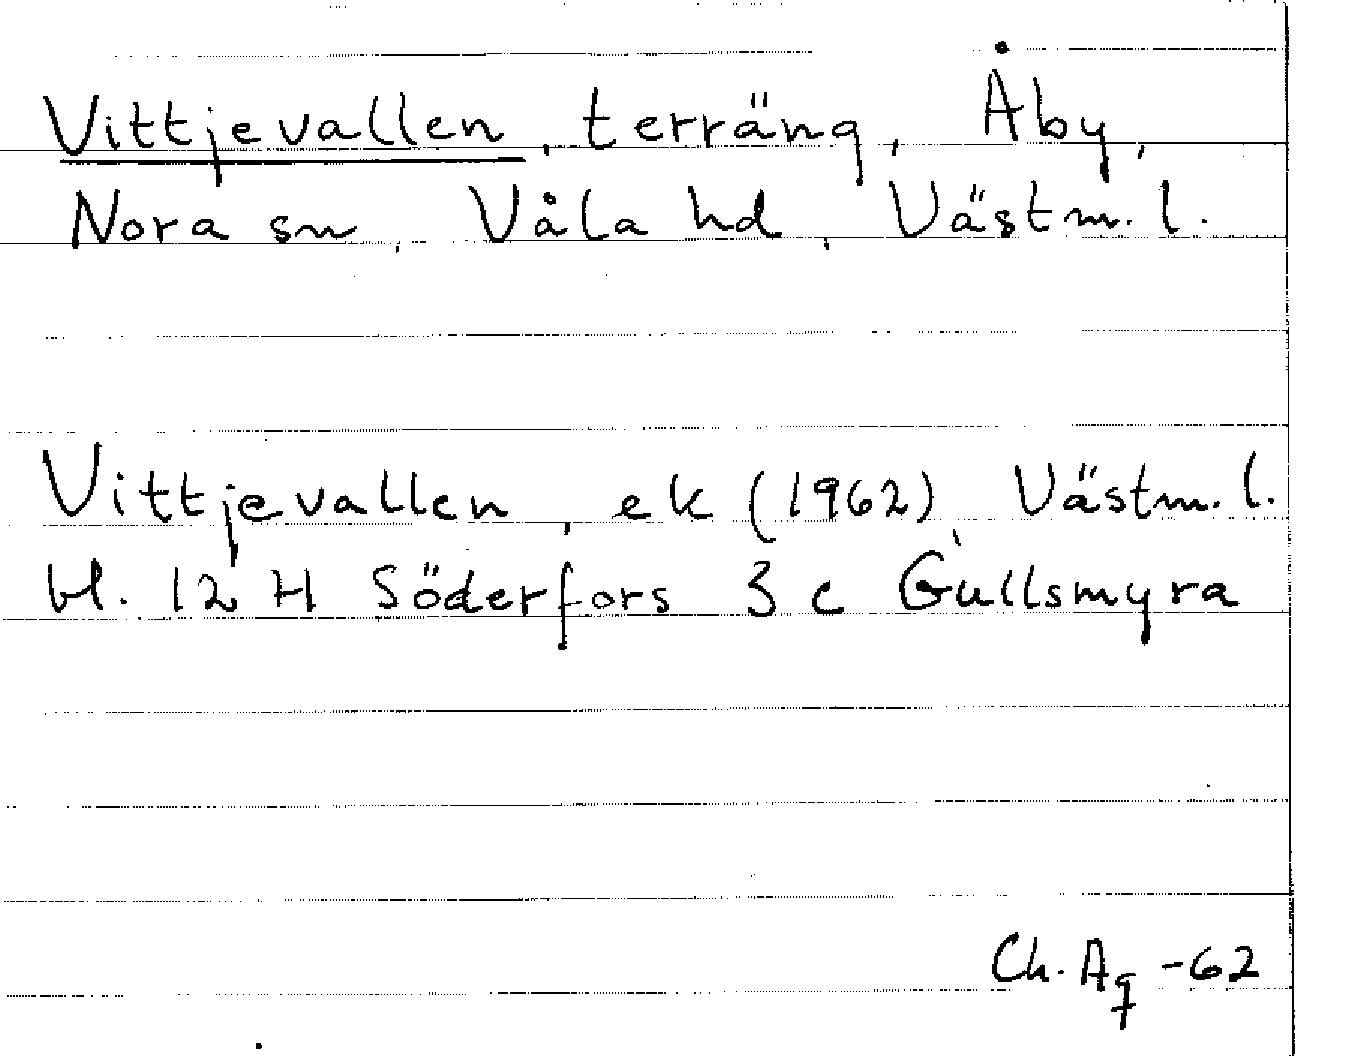 Vittjevallen, terräng, Åby,
Nora sn, Våla hd, Västm. l.
Vittjevallen, ek (1962) Västm. l.
bl. 12 H Söderfors 3 c Gullsmyra
Ch. Ag -62